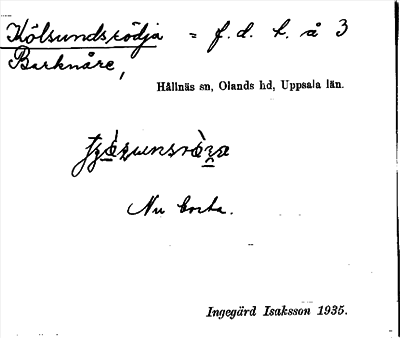 Kölsundsrödja = f.d. t. å 3
Barknåre,
Hållnäs sn, Olands hd, Uppsala län.
Nu borta.
Ingegärd Isaksson 1935.